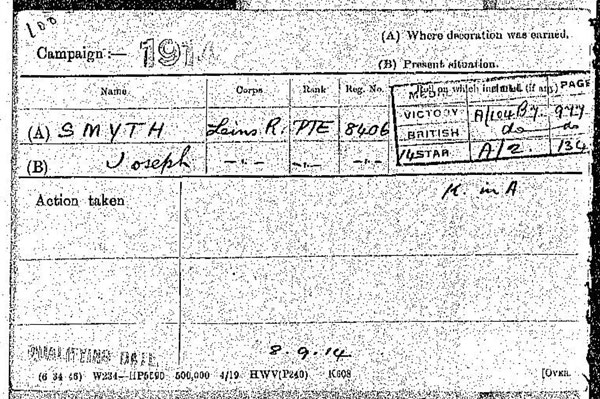 100
Campaign :— 1914
(A) Where decoration was earned.
(B) Present situation.
Name Corps Rank Reg. No. Roll on which included (if any)
MEDAL PAGE
(A) SMYTH Leins R. PTE 8406 VICTORY A/104 B7. 977
BRITISH do do
(B) Joseph —"— —"— —"— 14 STAR A/2. 134
Action taken
K. in A
QUALIFYING DATE 8.9.14
(6 34 46) W234—HP5590 500,000 4/19 HWV(P240) K608 [OVER.